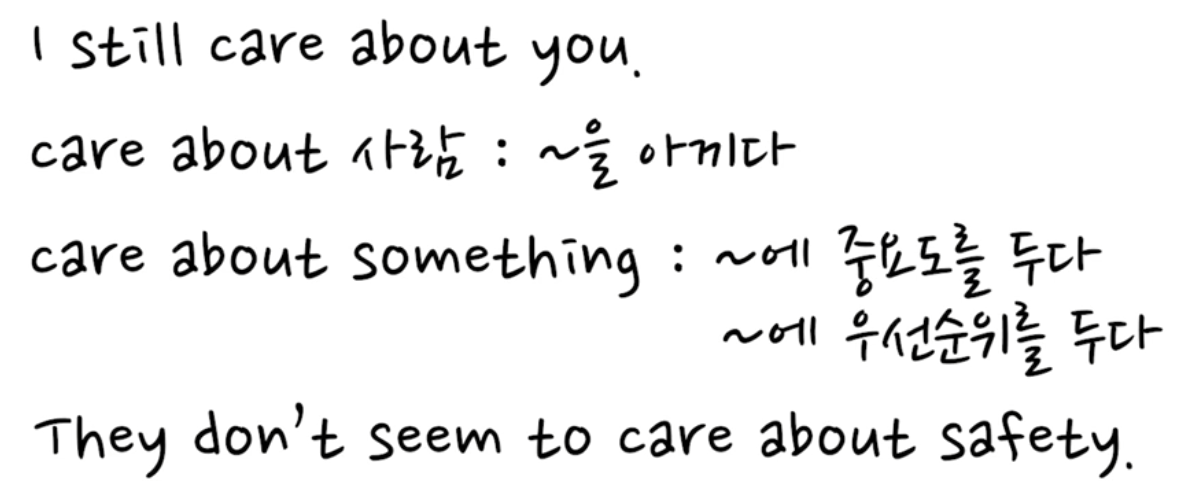 I still care about you.
care about 사람 : ~을 아끼다
care about something : ~에 중요도를 두다
~에 우선순위를 두다
They don't seem to care about safety.